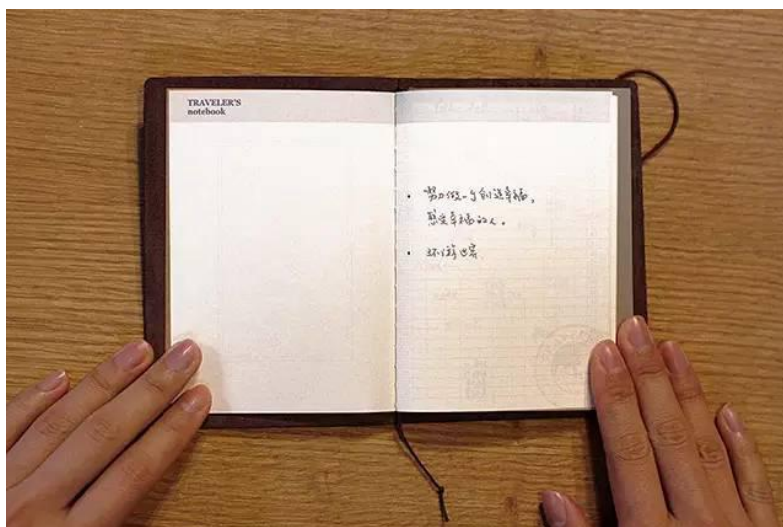 TRAVELER'S
notebook
· 努力做一个创造幸福，
感受幸福的人。
· 环游世界